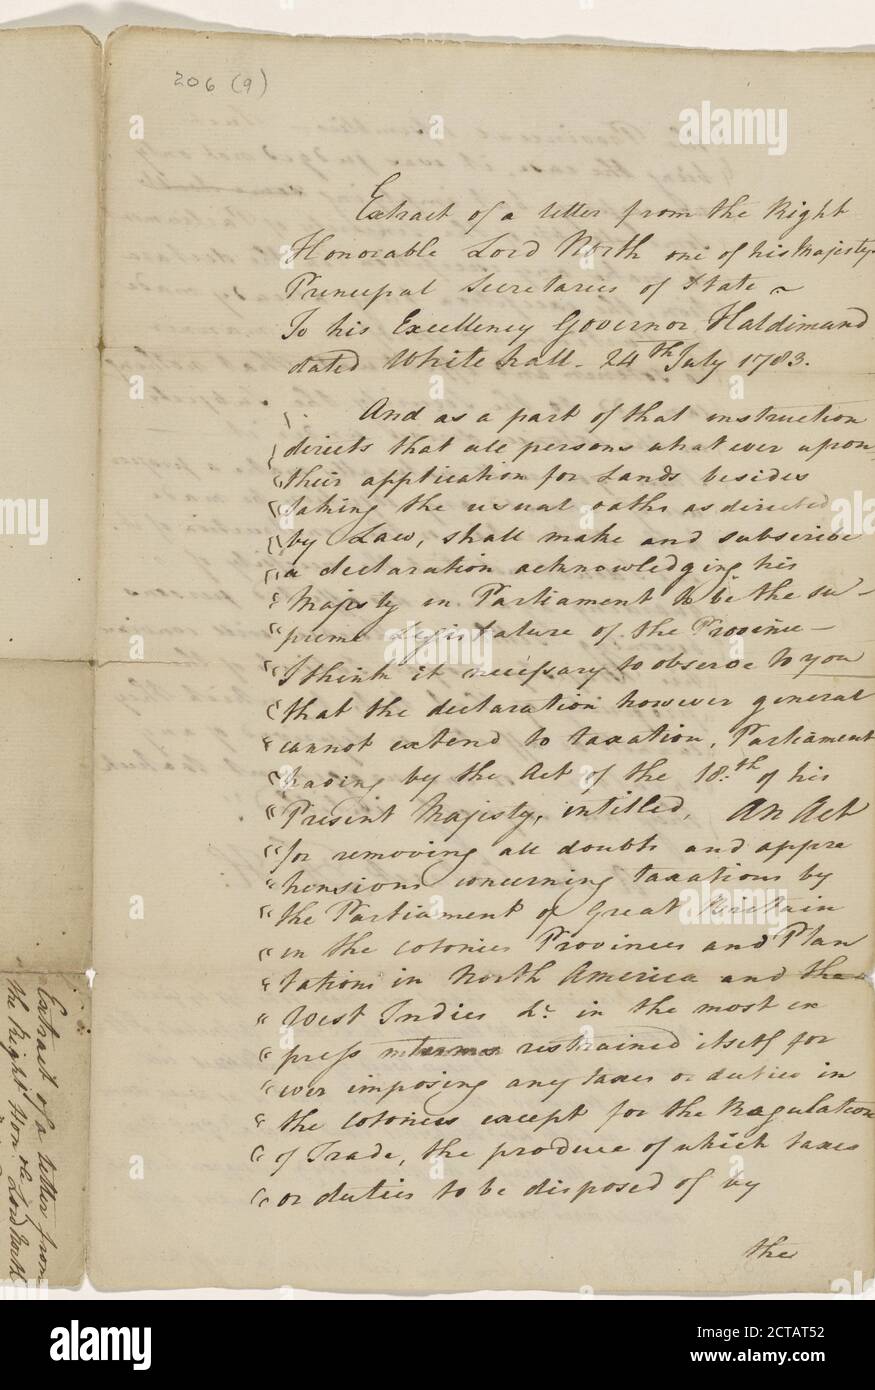 206 (9)
Extract of a letter from the Right
Honorable Lord North one of his Majesty's
Principal Secretaries of State ~
To his Excellency Governor Haldimand
dated White hall. 24th July 1783.
And as a part of that instruction
directs that all persons what ever upon
their application for Lands besides
taking the usual oaths as directed
by Law, shall make and subscribe
a declaration acknowledging his
Majesty in Parliament to be the su-
preme Legislature of the Province -
I think it necessary to observe to you
that the declaration however general
cannot extend to taxation, Parliament
having by the Act of the 18th of his
Present Majesty, intitled, An Act
for removing all doubts and appre
hensions concerning taxations by
the Parliament of Great Britain
in the colonies Provinces and Plan
tations in North America and the
West Indies &c. in the most ex
press terms restrained itself for
ever imposing any taxes or duties in
the Colonies except for the Regulation
of Trade, the produce of which taxes
or duties to be disposed of by
the
Extract of a letter from
the Right Honble Lord North
alamy
Image ID: 2CTAT52
www.alamy.com